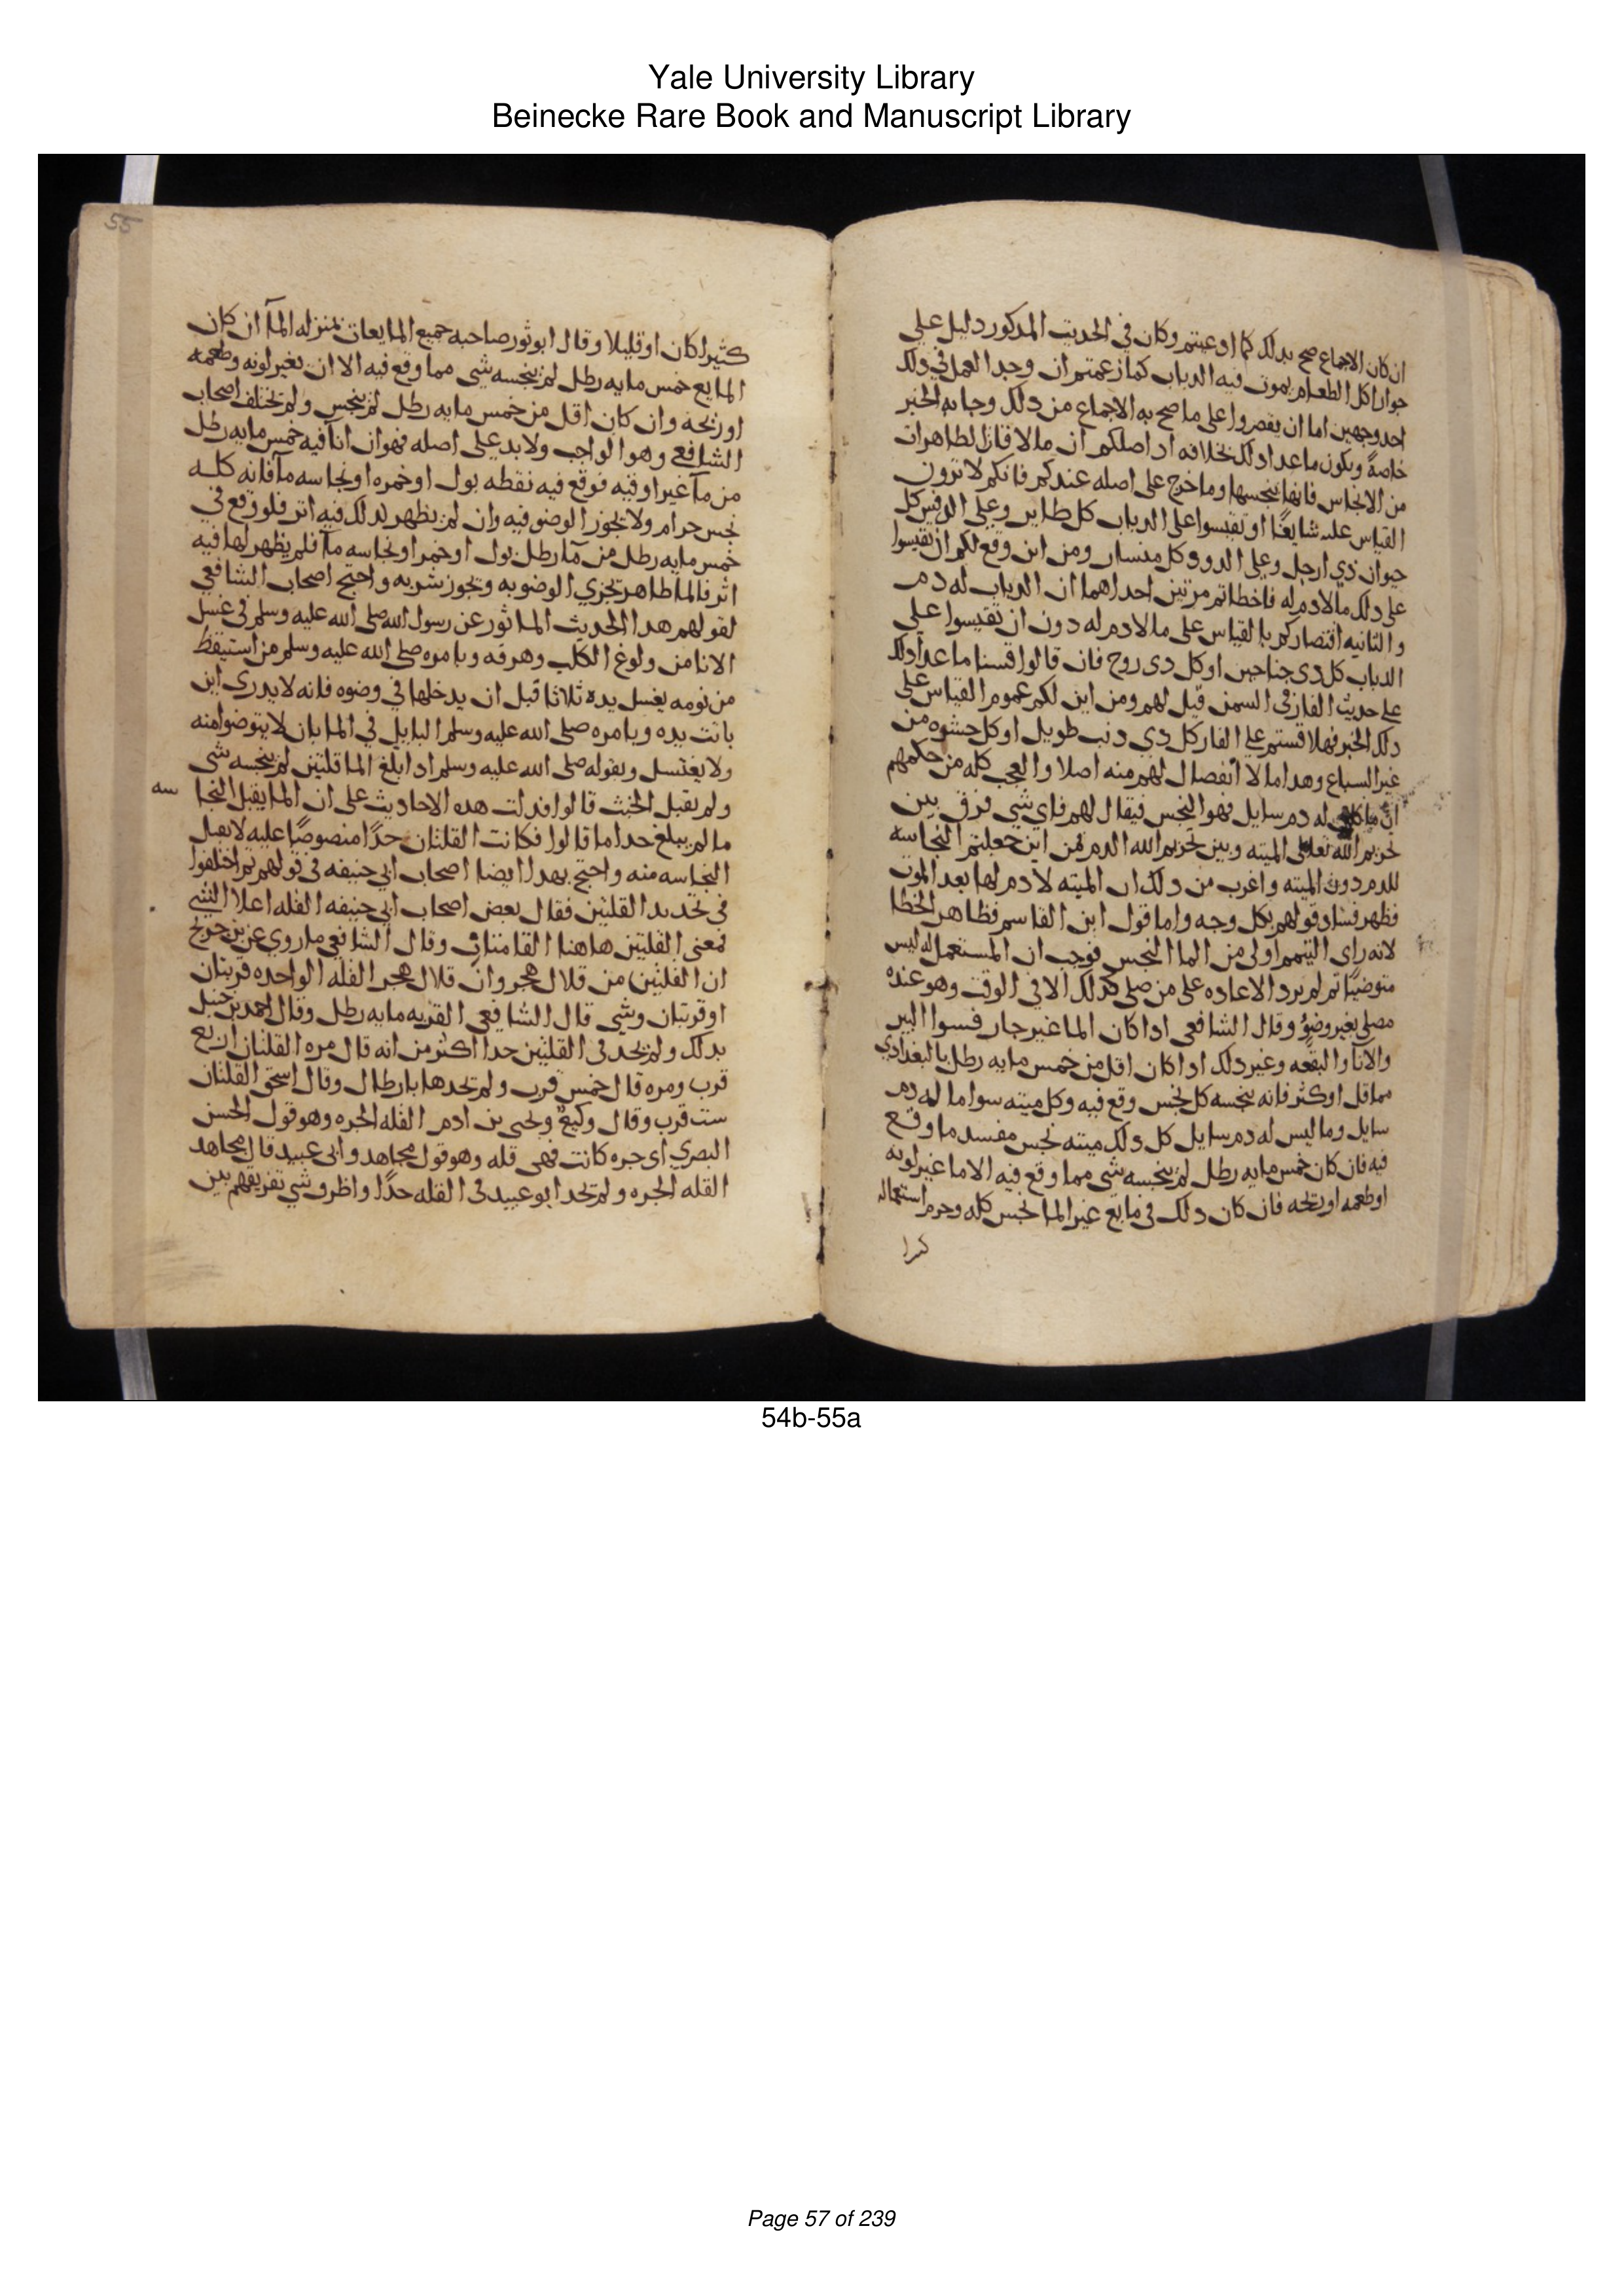 Yale University Library
Beinecke Rare Book and Manuscript Library
ان كان الاجماع صح بدلك كما ادعيتم وكان في الحديث المدكور دليل على
جواز اكل الطعام يموت فيه الدباب كما زعمتم ان وجدا العمل في دلك
احد وجهين اما ان يقصروا على ما صح به الاجماع من دلك وجا به الخبر
خاصةً ويكون ما عدا دلك بخلافه اد اصلكم ان ما لاقا من الطاهرات
من الانجاس فانها ينجسها وما خرج على اصله عندكم فانكم لا ترون
القياس عليه شايعًا او تقيسوا على الدباب كل طاير وعلى كل
حيوان دي ارجل وعلى الدود كل منسار ومن اين وقع لكم ان تقيسوا
على دلك ما لا دم له فاخطاتم مرتين احداهما ان الدباب له دم
والثانيه اقتصاركم بالقياس على ما لا دم له دون ان تقيسوا على
الدباب كل دي جناحين او كل دي روح فان قالوا قسنا ما عدا دلك
على حديث الفار في السمن قيل لهم ومن اين لكم عموم القياس على
دلك الخبر فهلا قستم على الفار كل دي دنب طويل او كل حشوه من
غير السباع وهدا ما لا انفصال لهم منه اصلا والعجب كله من حكمهم
ان ما له دم سايل فهو النجس فيقال لهم فاي شي فرق بين
تحريم الله تعالى الميته وبين تحريم الله الدم فمن اين جعلتم النجاسه
للدم دون الميته واغرب من دلك ان الميته لا دم لها بعد الموت
فظهر فساد قولهم بكل وجه واما قول ابن القاسم فظاهر الخطا
لانه راى التيمم اولى من الما النجس فوجب ان المستعمل له ليس
متوضيًا ثم لم يرد الاعاده على من صلى كدلك الا في الوقت وهو عنده
مصلى بغير وضوُ وقال الشافعي ادا كان الما غير جار فسوا البير
والانا والبقعه وغير دلك ادا كان اقل من خمس مايه رطل بالبغدادي
مما قل او كثر فانه ينجسه كل نجس وقع فيه وكل ميته سوا ما له دم
سايل وما ليس له دم سايل كل دلك ميته نجس مفسد ما وقع
فيه فان كان خمس مايه رطل لم ينجسه شي مما وقع فيه الا ما غير لونه
او طعمه او ريحه فان كان دلك في مايع غير الما نجس كله وحرم استعماله
كثيرا
55
كثيرا كان او قليلا وقال ابو ثور صاحبه جميع المايعات بمنزله الما ان كان
المايع خمس مايه رطل لم ينجسه شي مما وقع فيه الا ان يغير لونه وطعمه
او ريحه وان كان اقل من خمس مايه رطل لم ينجس ولم يختلف اصحاب
الشافعي وهو الواجب ولا بد على اصله فهو ان انا فيه خمس مايه رطل
من ما غير اوقيه فوقع فيه نقطه بول او خمره او نجاسه ما فانه كله
نجس حرام ولا يجوز الوضو فيه وان لم يظهر لدلك فيه اثر فلو وقع في
خمس مايه رطل من ما رطل بول او خمر او نجاسه ما فلم يظهر لها فيه
اثر فالما طاهر تجزي الوضو به ويجوز شربه واحتج اصحاب الشافعي
لقولهم هدا الحديث الماثور عن رسول الله صلى الله عليه وسلم في غسل
الانا من ولوغ الكلب وهرقه وبامره صلى الله عليه وسلم من استيقظ
من نومه يغسل يده ثلاثا قبل ان يدخلها في وضوه فانه لا يدري اين
باتت يده وبامره صلى الله عليه وسلم البايل في الما بان لا يتوضوا منه
ولا يغتسل وبقوله صلى الله عليه وسلم ادا بلغ الما قلتين لم ينجسه شي
ولم يقبل الخبث قالوا فدلت هده الاحاديث على ان الما يقبل النجا سه
ما لم يبلغ حدا ما قالوا فكانت القلتان حدًا منصوصًا عليه لا يقبل
النجاسه منه واحتج بهدا ايضا اصحاب ابي حنيفه في قولهم ثم اختلفوا
في تحديد القلتين فقال بعض اصحاب ابي حنيفه القله اعلا الشي
فمعنى القلتين هاهنا القامتان وقال الشافعي ما روي عن بن جريج
ان القلتين من قلال هجر وان قلال هجر القله الواحده قربتان
او قربتان وشي قال الشافعي القربه مايه رطل وقال احمد بن حنبل
بدلك ولم يحد في القلتين حدا اكثر من انه قال مره القلتان اربع
قرب ومره قال خمس قرب ولم تحدها بارطال وقال اسحق القلتان
ست قرب وقال وكيع ويحيى بن ادم القله الجره وهو قول الحسن
البصري اي جره كانت فهي قله وهو قول مجاهد وابي عبيد قال مجاهد
القله الجره ولم يحد ابو عبيد في القله حدًا واظرف شي تفريقهم بين
54b-55a
Page 57 of 239